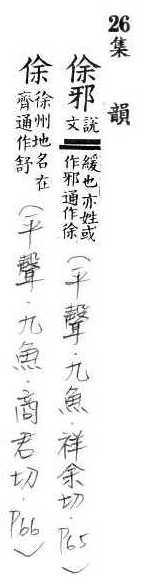 26集韻
俆邪 說文緩也亦姓或作邪通作徐(平聲.九魚.祥余切.P65)
俆 徐州地名在齊通作舒(平聲.九魚.商君切.P66)